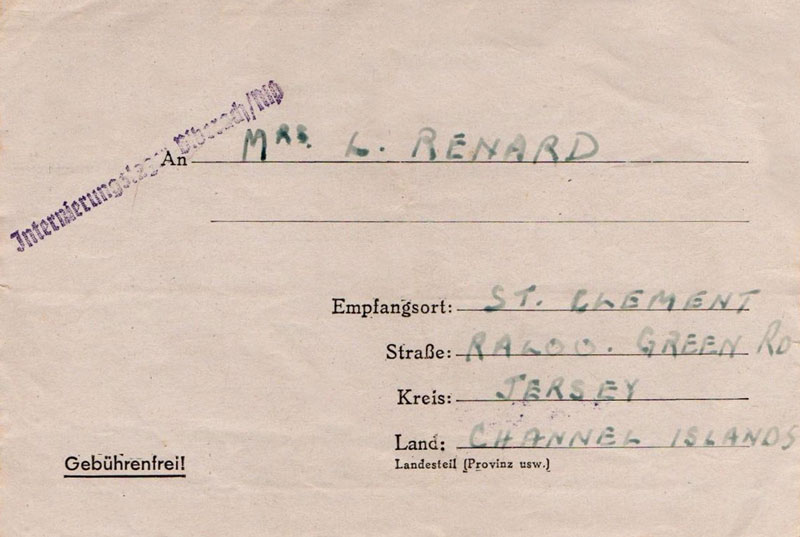 Internierungslager Biberach/Riß
An Mrs. L. RENARD
Empfangsort: ST. CLEMENT
Straße: RALOO. GREEN RD
Kreis: JERSEY
Land: CHANNEL ISLANDS
Landesteil (Provinz usw.)
Gebührenfrei!